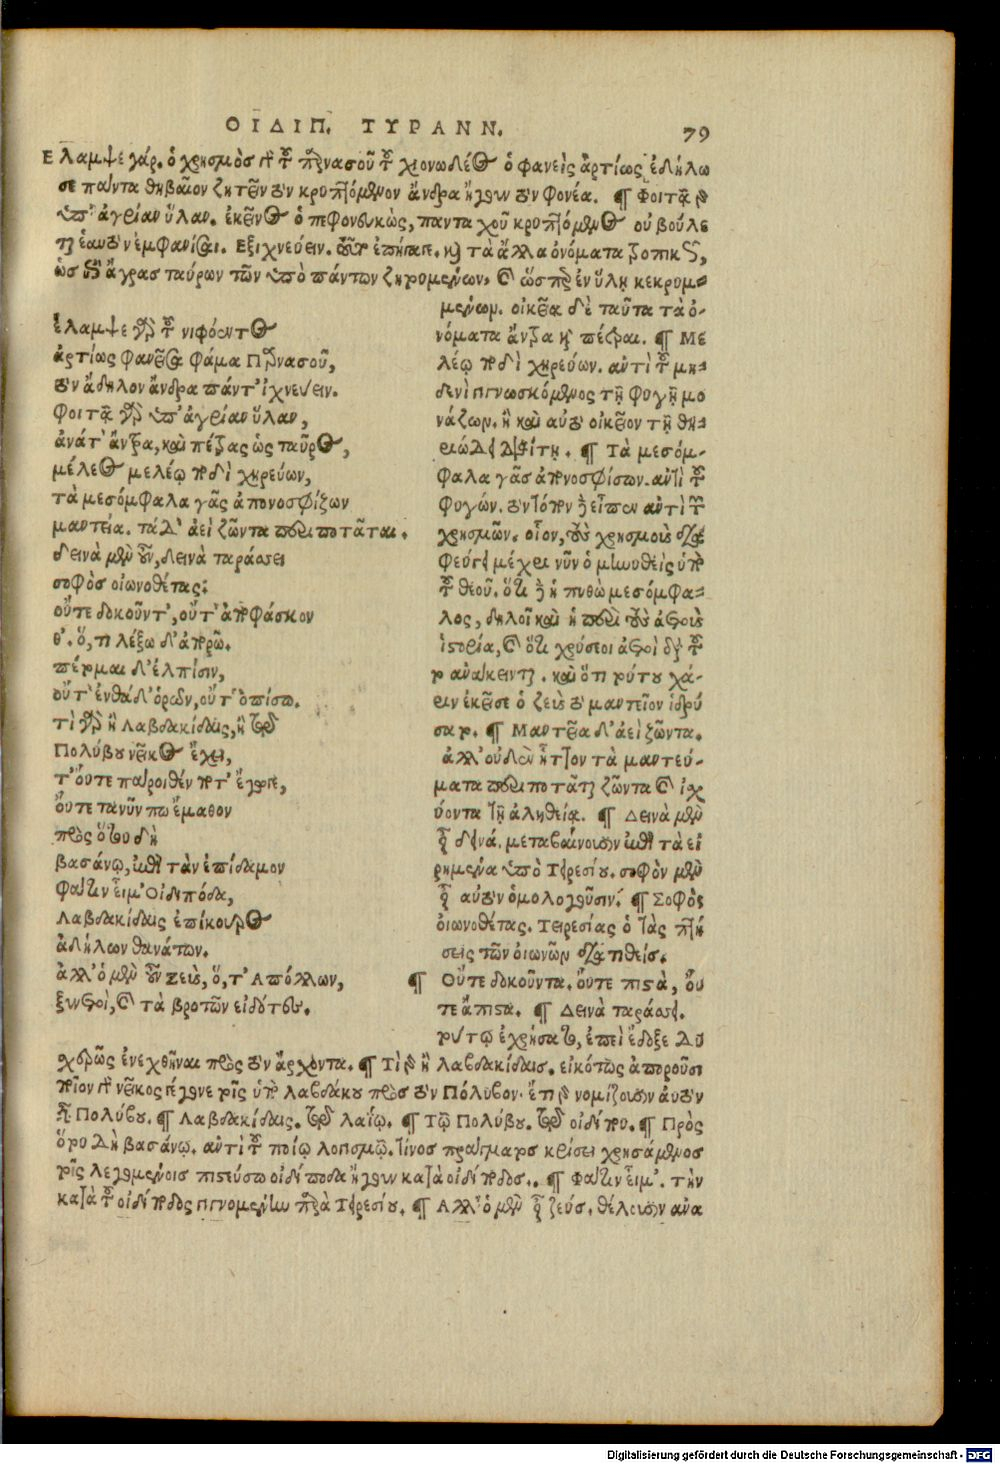 ΟΙΔΙΠ. ΤΥΡΑΝΝ. 79
Ελαμψε γάρ. ὁ χρησμὸς ὁ τοῦ παρνασοῦ τοῦ χιονώδεος ὁ φανεὶς ἀρτίως ἐδήλω
σε πάντα θηβαῖον ζητεῖν τὸν κρυπτόμενον ἄνδρα ἤγουν τὸν φονέα. ¶ Φοιτᾷ γὰρ
ὑπ' ἀγρίαν ὕλαν. ἐκεῖνος ὁ πεφονευκὼς, πανταχοῦ κρυπτόμενος οὐ βούλε
ται ἑαυτὸν ἐμφανίσαι. Εξιχνεύειν. καὶ τὰ ἄλλα ὀνόματα
ὡς ἄγρας ταύρων τῶν ὑπὸ πάντων ζητουμένων, καὶ ὥσπερ ἐν ὕλῃ κεκρυμ-
ἔλαμψε γὰρ τοῦ νιφόεντος
ἀρτίως φανεῖσα φάμα Παρνασοῦ,
τὸν ἄδηλον ἄνδρα πάντ' ἰχνεύειν.
φοιτᾷ γὰρ ὑπ' ἀγρίαν ὕλαν,
ἀνάτ' ἄντρα, καὶ πέτρας ὡς ταῦρος,
μέλεος μελέῳ ποδὶ χηρεύων,
τὰ μεσόμφαλα γᾶς ἀπονοσφίζων
μαντεῖα. τὰ δ' ἀεὶ ζῶντα περιποτᾶται.
δεινὰ μὲν οὖν, δεινὰ ταράσσει
σοφὸς οἰωνοθέτας:
οὔτε δοκοῦντ', οὔτ' ἀποφάσκον
θ'. ὅ,τι λέξω δ' ἀπορῶ.
πέτομαι δ' ἐλπίσιν,
οὔτ' ἐνθάδ' ὁρῶν, οὔτ' ὀπίσω.
τί γὰρ ἢ Λαβδακίδαις, ἢ τῷ
Πολύβου νεῖκος ἔχει,
τ' οὔτε πάροιθέν ποτ' ἔγωγε,
οὔτε τανῦν πω ἔμαθον
πρὸς ὅτου δὴ
βασάνῳ, ἐπὶ τὰν ἐπίδαμον
φάτιν εἶμ' Οἰδιπόδα,
Λαβδακίδαις ἐπίκουρος
ἀδήλων θανάτων.
ἀλλ' ὁ μὲν οὖν Ζεὺς, ὅ,τ' Απόλλων,
ξυνετοὶ, καὶ τὰ βροτῶν εἰδότες.
μένων. οἰκεῖα δὲ ταῦτα τὰ ὀ-
νόματα ἄντρα καὶ πέτραι. ¶ Με
λέῳ ποδὶ χηρεύων. ἀντὶ τοῦ μη-
δενὶ γιγνωσκόμενος τῇ φυγῇ μο
νάζων. ἢ καὶ αὐτὸ οἰκεῖον τῇ θη-
¶ Τὰ μεσόμ-
φαλα γᾶς ἀπονοσφίζων. ἀντὶ τοῦ
φυγών. εἶπον ἀντὶ τοῦ
χρησμῶν. οἷον, τοὺς χρησμοὺς δια
φεύγει μέχρι νῦν ὁ μηνυθεὶς ὑπὸ
τοῦ θεοῦ. ὅτι δὲ ἡ πυθὼ μεσόμφα-
λος, δηλοῖ καὶ ἡ περὶ τοὺς ἀετοὺς
ἱστορία, καὶ ὅτι χρύσεοι ἀετοὶ διὰ τοῦ
το ἀνάκεινται. καὶ ὅτι τούτου χά-
ριν ἐκεῖσε ὁ ζεὺς τὸ μαντεῖον ἱδρύ
σατο. ¶ Μαντεῖα δ' ἀεὶ ζῶντα.
ἀλλ' οὐδὲν ἧττον τὰ μαντεύ-
ματα περιποτᾶται ζῶντα καὶ ἰσχ
ύοντα τῇ ἀληθείᾳ. ¶ Δεινὰ μὲν
οὖν δεινά. μεταβαίνουσιν ἐπὶ τὰ εἰ
ρημένα ὑπὸ Τειρεσίου. σοφὸν μὲν
οὖν αὐτὸν ὁμολογοῦσιν. ¶ Σοφὸς
οἰωνοθέτας. Τειρεσίας ὁ τὰς πτή
σεις τῶν οἰωνῶν διατιθείς.
¶ Οὔτε δοκοῦντα. οὔτε πιστὰ, οὔ
τε ἄπιστα. ¶ Δεινὰ ταράσσει.
τούτῳ ἐχρήσατο, ἐπεὶ ἔδοξε δυ
χερῶς ἐνεχθῆναι πρὸς τὸν ἄρχοντα. ¶ Τί γὰρ ἢ λαβδακίδαις. εἰκότως ἀποροῦσι
ποῖον τὸ νεῖκος γέγονε τοῖς ὑπὸ λαβδάκου πρὸς τὸν Πόλυβον. ἔτι γὰρ νομίζουσιν αὐτὸν
εἶναι Πολύβου. ¶ Λαβδακίδαις. τῷ λαΐῳ. ¶ Τῷ Πολύβου. τῷ οἰδίποδι. ¶ Πρὸς
ὅτου δὴ βασάνῳ. ἀντὶ τοῦ ποίῳ λογισμῷ. τίνος πράγματος κρίσει χρησάμενος
τοῖς λεγομένοις πιστεύσω οἰδίποδα ἤγουν κατὰ οἰδίποδος. ¶ Φάτιν εἶμ'. τὴν
κατὰ τοῦ οἰδίποδος γιγνομένην παρὰ Τειρεσίου. ¶ Αλλ' ὁ μὲν οὖν ζεύς. θέλουσιν ἀνα
Digitalisierung gefördert durch die Deutsche Forschungsgemeinschaft - DFG